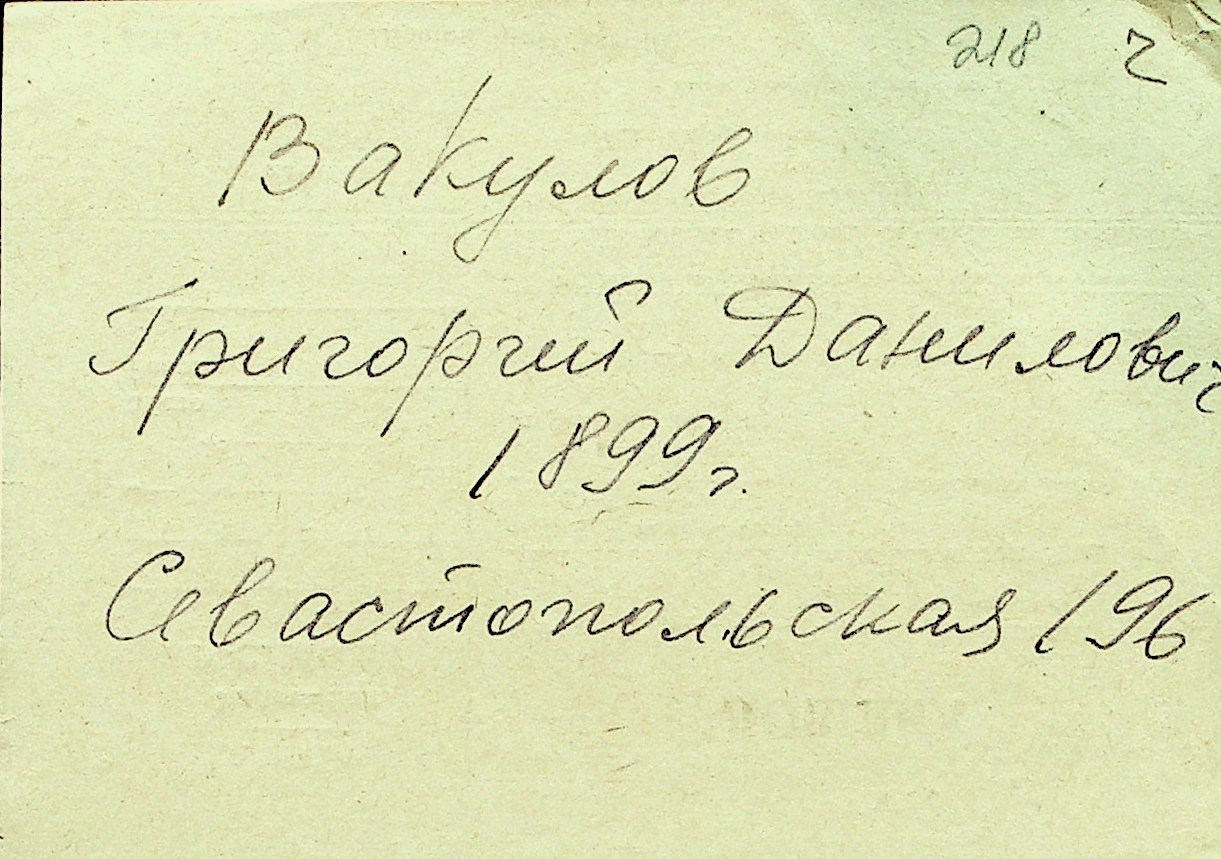 218 ч
Вакулов
Григорий Данилович
1899 г.
Севастопольская 196